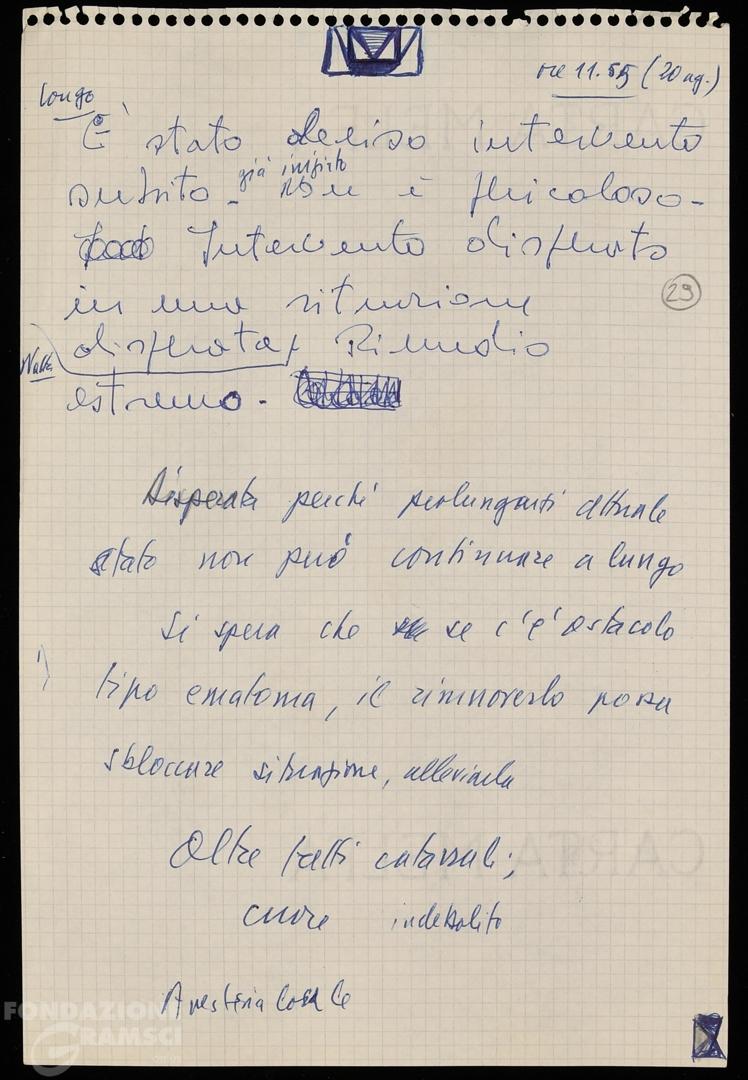 ore 11.55 (20 ag.)
Longo
È stato deciso intervento
già iniziato
subito. Non è pericoloso -
Intervento disperato
in una situzione
29
disperata, Rimedio
Natta
estremo.
Disperata perché prolungarsi attuale
stato non può continuare a lungo
Si spera che se c'è ostacolo
tipo ematoma, il rimuoverlo possa
sbloccare situazione, alleviarla
Oltre fatti catarrali;
cuore indebolito
Anestesia locale
FONDAZIONE
GRAMSCI